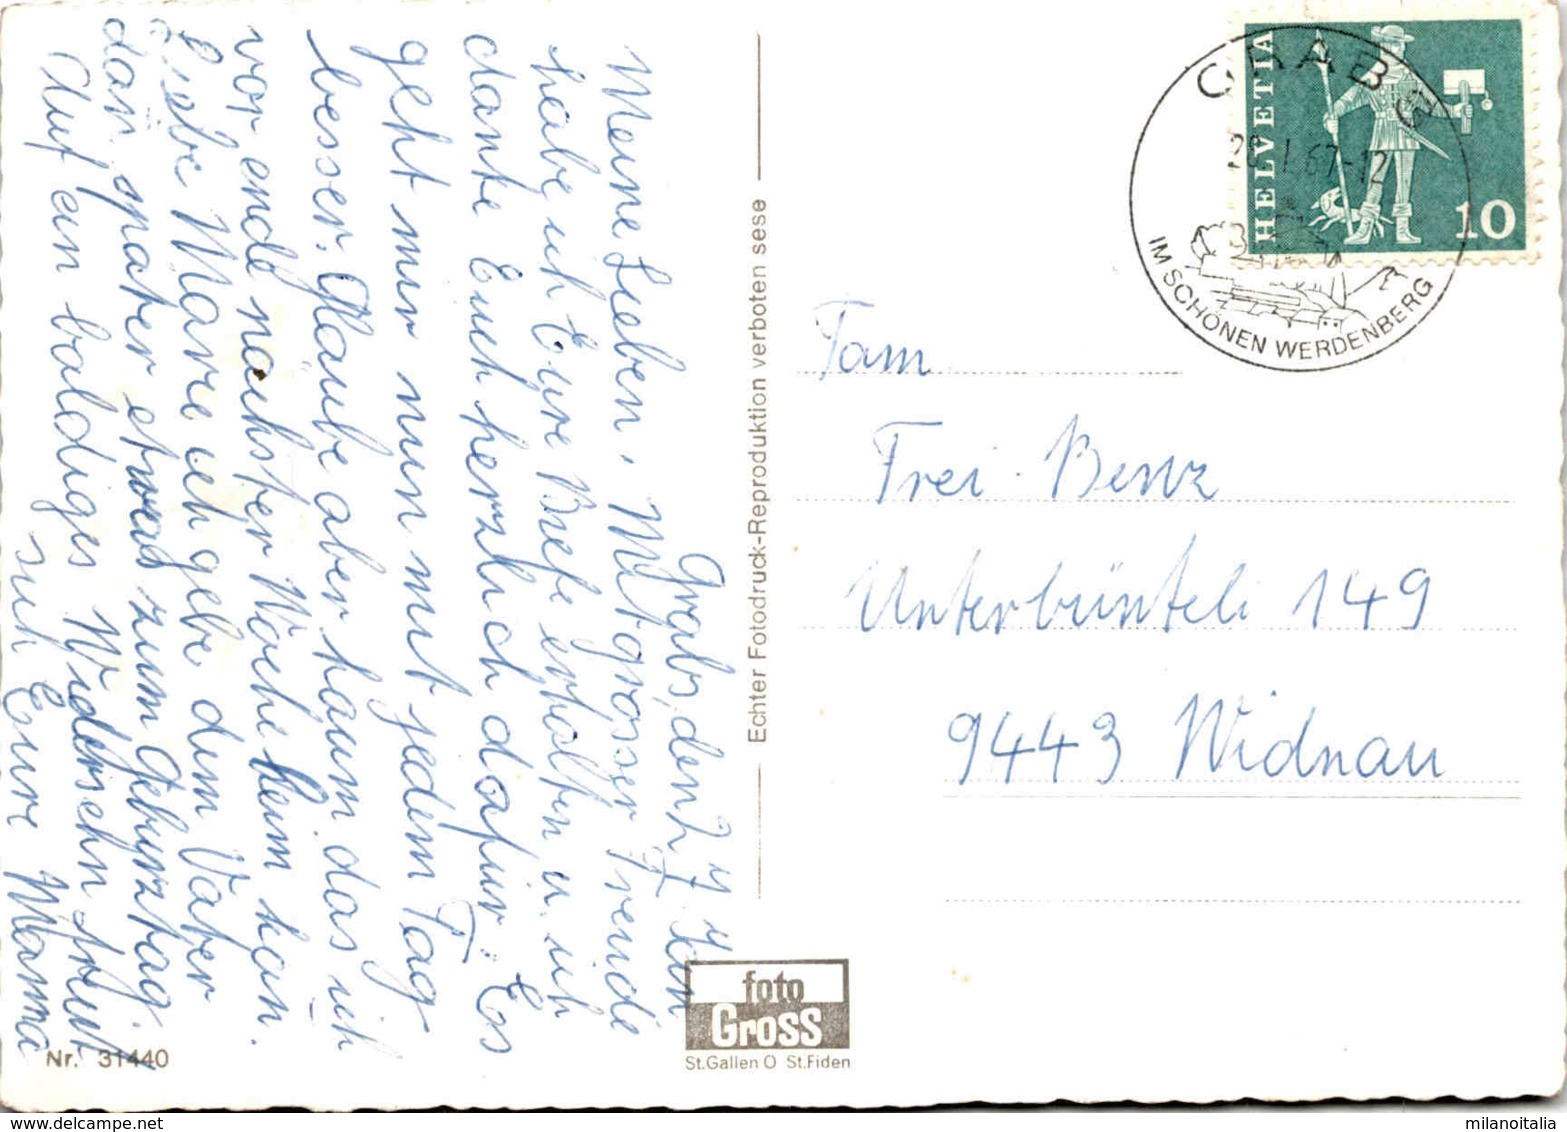 Grabs, den 27. Jan
Meine Lieben, Mit grosser Freude
habe ich Eure Briefe erhalten u. ich
danke Euch herzlich dafür. Es
geht mir nun mit jedem Tag
besser. Glaube aber kaum das ich
vor ende nächster Woche heim kan.
Liebe Marie ich gebe dem Vater
dan später etwas zum Geburztag.
Auf ein baldiges Widersehn freut
sich Eure Mamma
Echter Fotodruck-Reproduktion verboten sese
Nr. 31440
foto
Gross
St.Gallen O St.Fiden
GRABS
I.67-12
IM SCHÖNEN WERDENBERG
HELVETIA
10
Fam
Frei-Benz
Unterbünteli 149
9443 Widnau
milanoitalia
www.delcampe.net